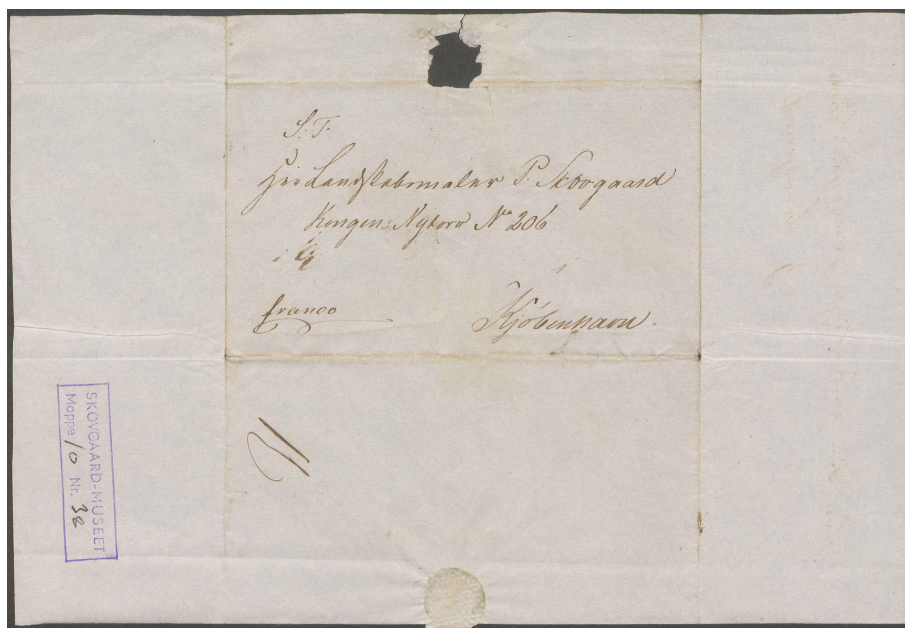 S. T.
Herr Landskabsmaler P. Skovgaard
Kongens Nytorv No 206
i
franco
Kjöbenhavn.
SKOVGAARD-MUSEET
Mappe 10 Nr. 38